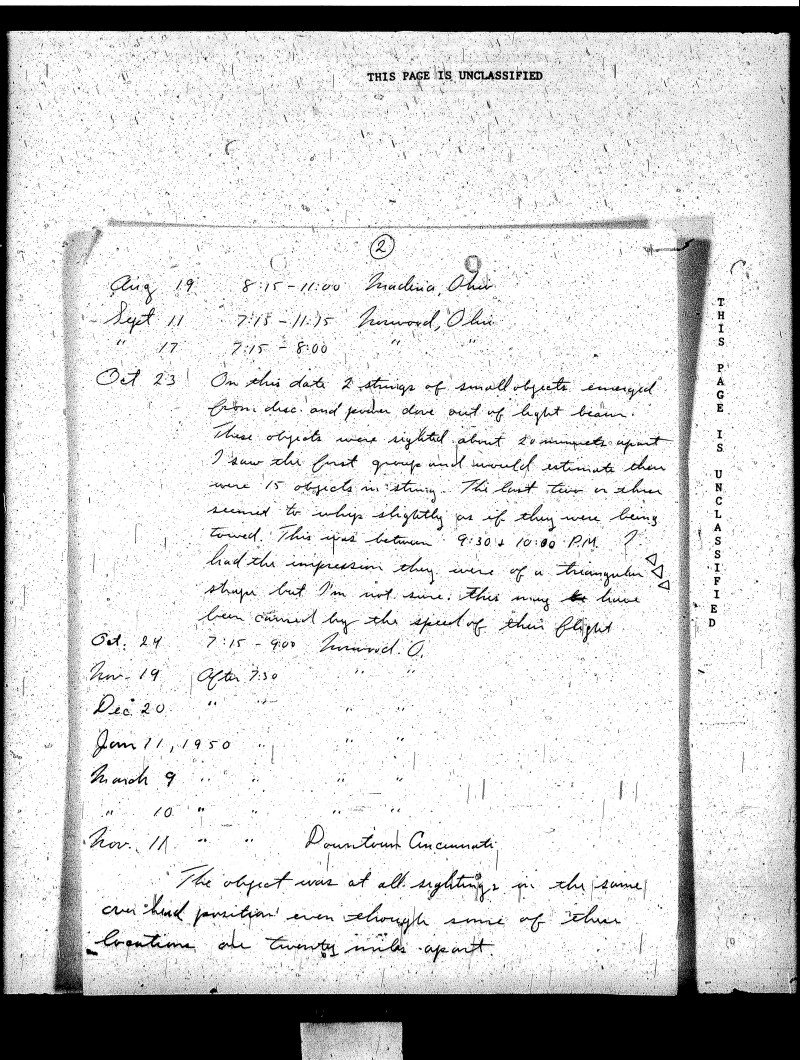 THIS PAGE IS UNCLASSIFIED
2
Aug 19 8:15 - 11:00 Madeira, Ohio
Sept 11 7:15 - 11:15 Norwood, Ohio
" 17 7:15 - 8:00 " "
Oct 23 On this date 2 strings of small objects emerged
from disc and power dove out of light beam.
These objects were sighted about 20 minutes apart
I saw the first group and would estimate there
were 15 objects in string. The last two or three
seemed to whip slightly as if they were being
towed. This was between 9:30 & 10:00 P.M. I
had the impression they were of a triangular
shape but I'm not sure. this may have
been caused by the speed of their flight
Oct. 24 7:15 - 9:00 Norwood. O.
Nov. 19 After 7:30 " "
Dec. 20 " " " "
Jan 11, 1950 " " "
March 9 " " " "
" 10 " " " "
Nov. 11 " " Downtown Cincinnati
The object was at all sightings in the same
over head position even though some of these
locations are twenty miles apart
THIS PAGE IS UNCLASSIFIED